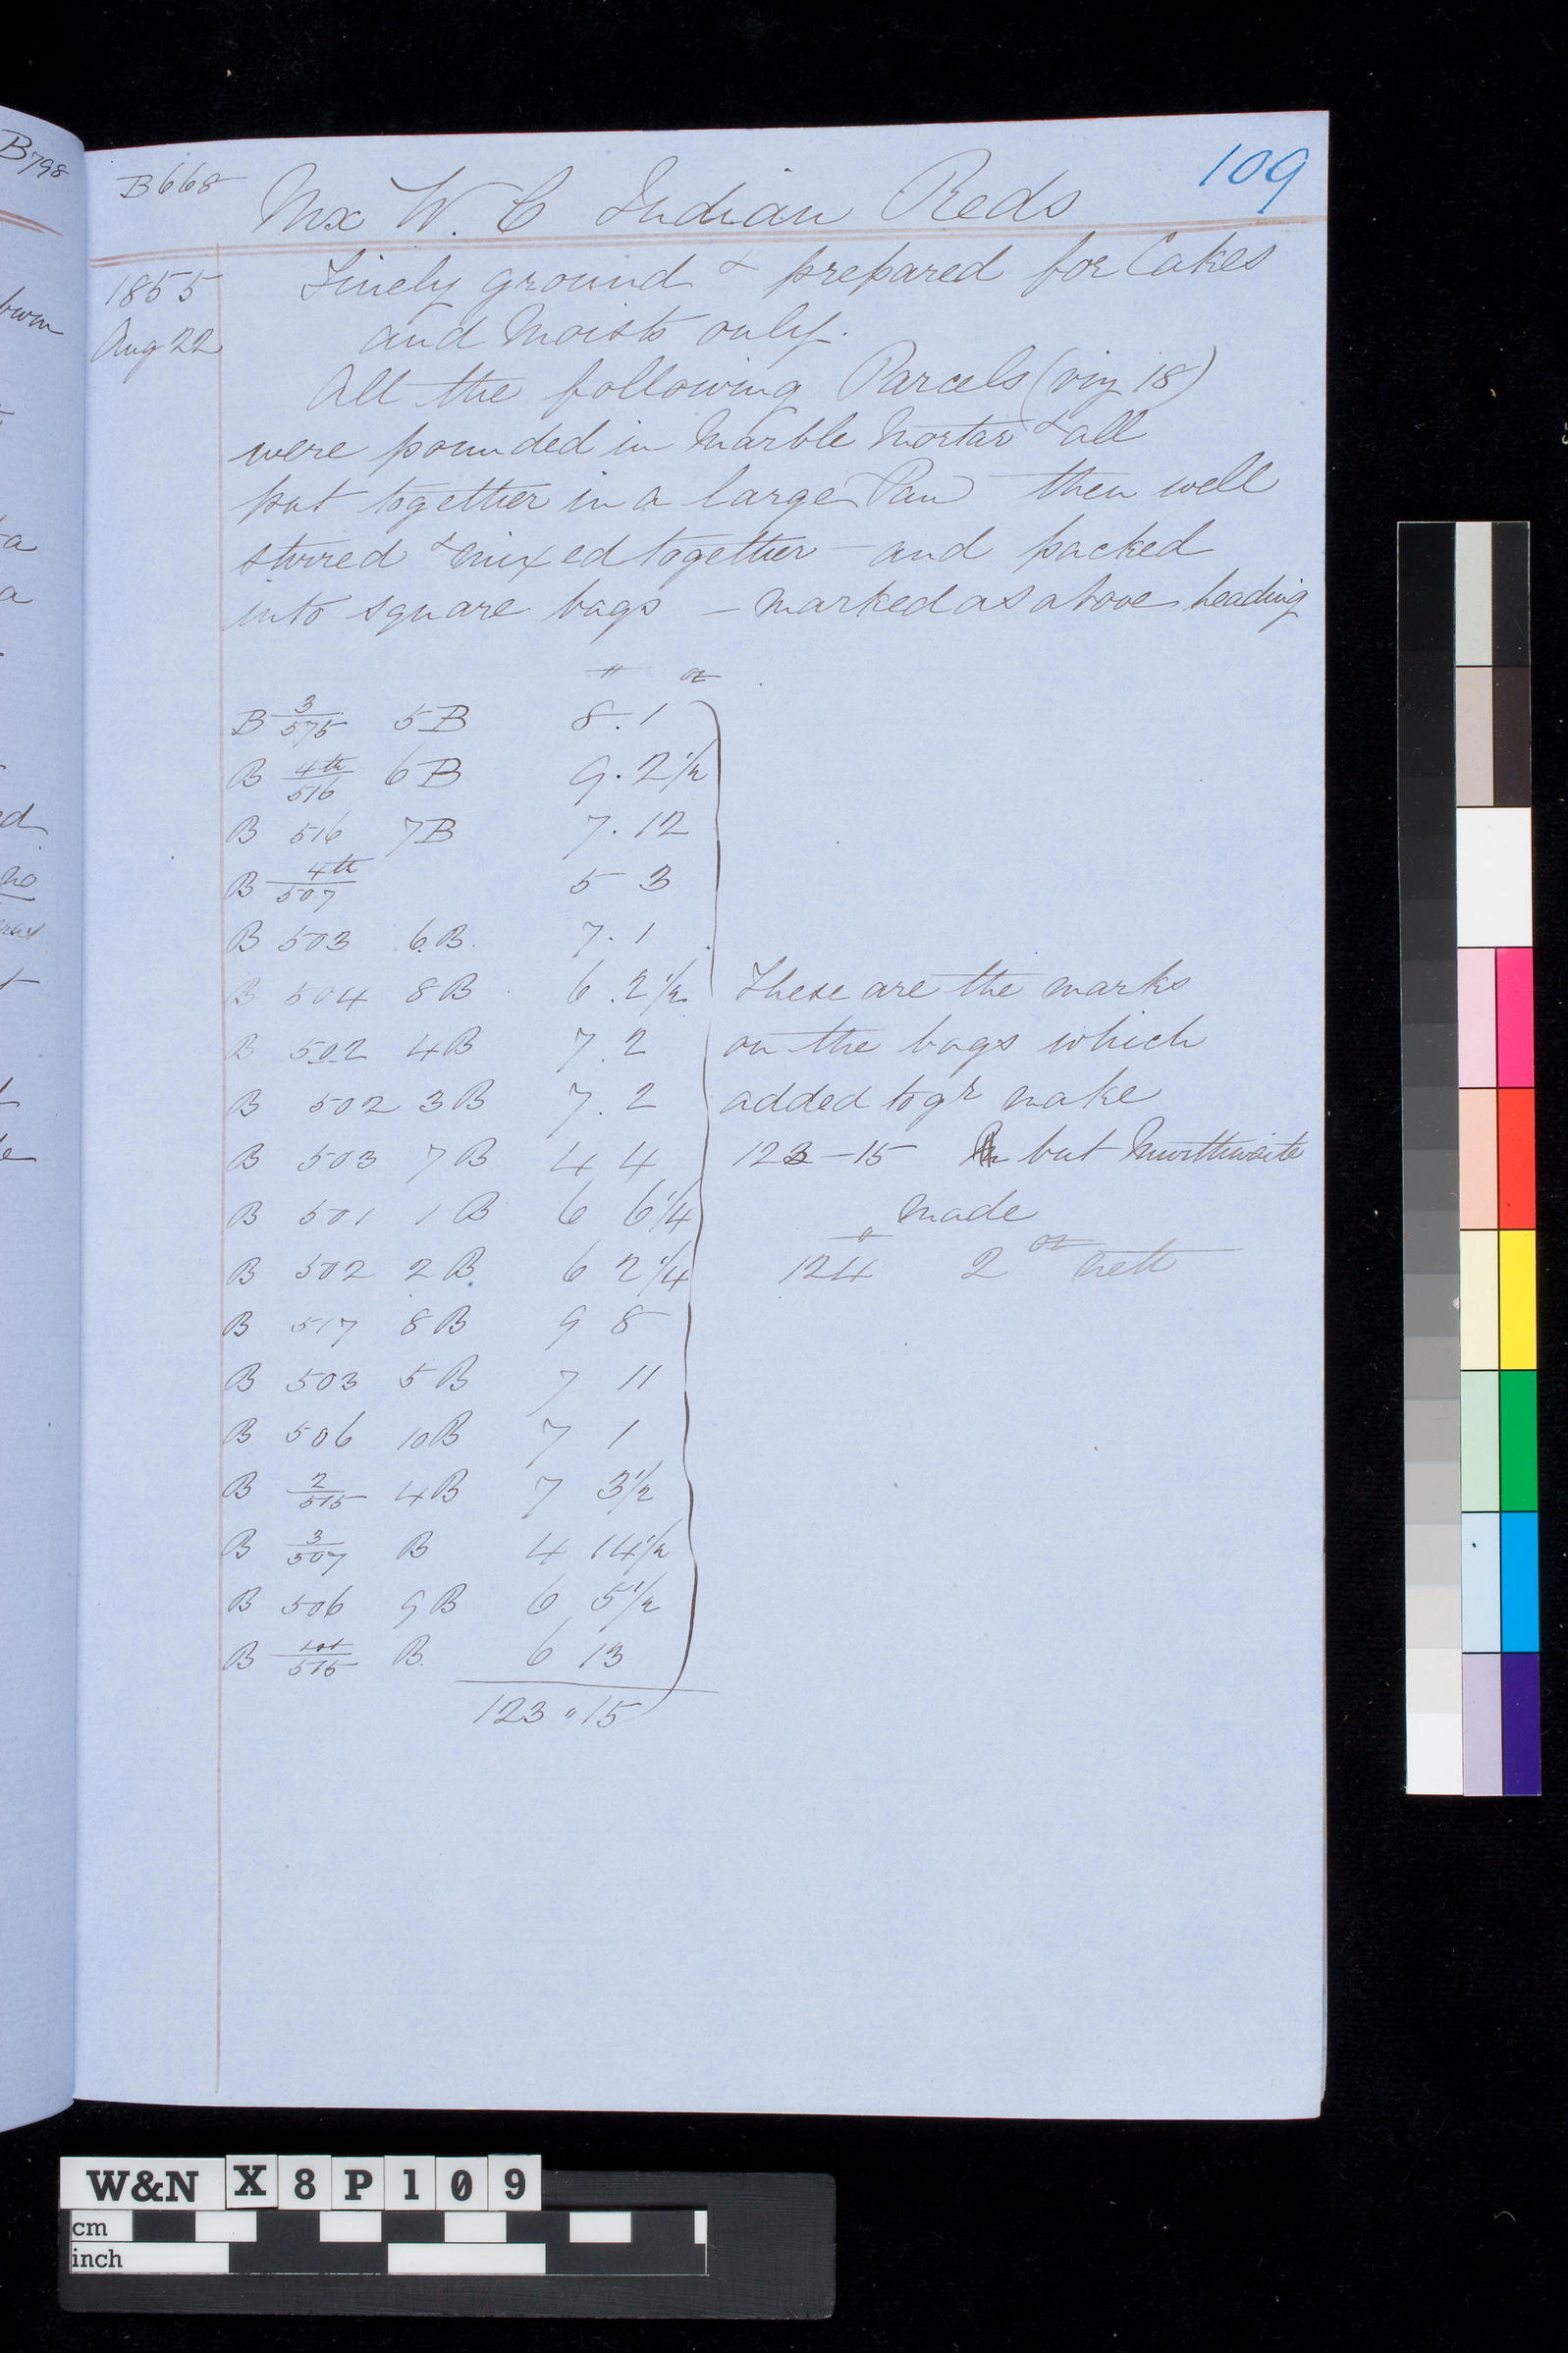 B798
B668
109
Mx W. C Indian Reds
1855
Aug 22
Finely ground & prepared for Cakes
and Moists only.
All the following Parcels (viz 18)
were pounded in Marble Mortar & all
put together in a large Pan then well
stirred & mixed together – and packed
into square bags – marked as above heading
oz
B 3/575 5B 8.1
B 4th/516 6B 9.2½
B 516 7B 7.12
B 4th/507 5 3
B 503 6B. 7.1
B 504 8B 6.2½
B 502 4B 7.2
B 502 3B 7.2
B 503 7B 4 4
B 501 1B 6 6¼
B 502 2B 6 2¼
B 517 8B 9 8
B 503 5B 7 11
B 506 10B 7 1
B 2/515 4B 7 3½
B 3/507 B 4 14½
B 506 9B 6 5½
B 1st/515 B. 6 13
123 " 15
These are the marks
on the bags which
added togr make
123–15 but Murthwaite
made
124 2 oz nett
W&N X8P109
cm
inch